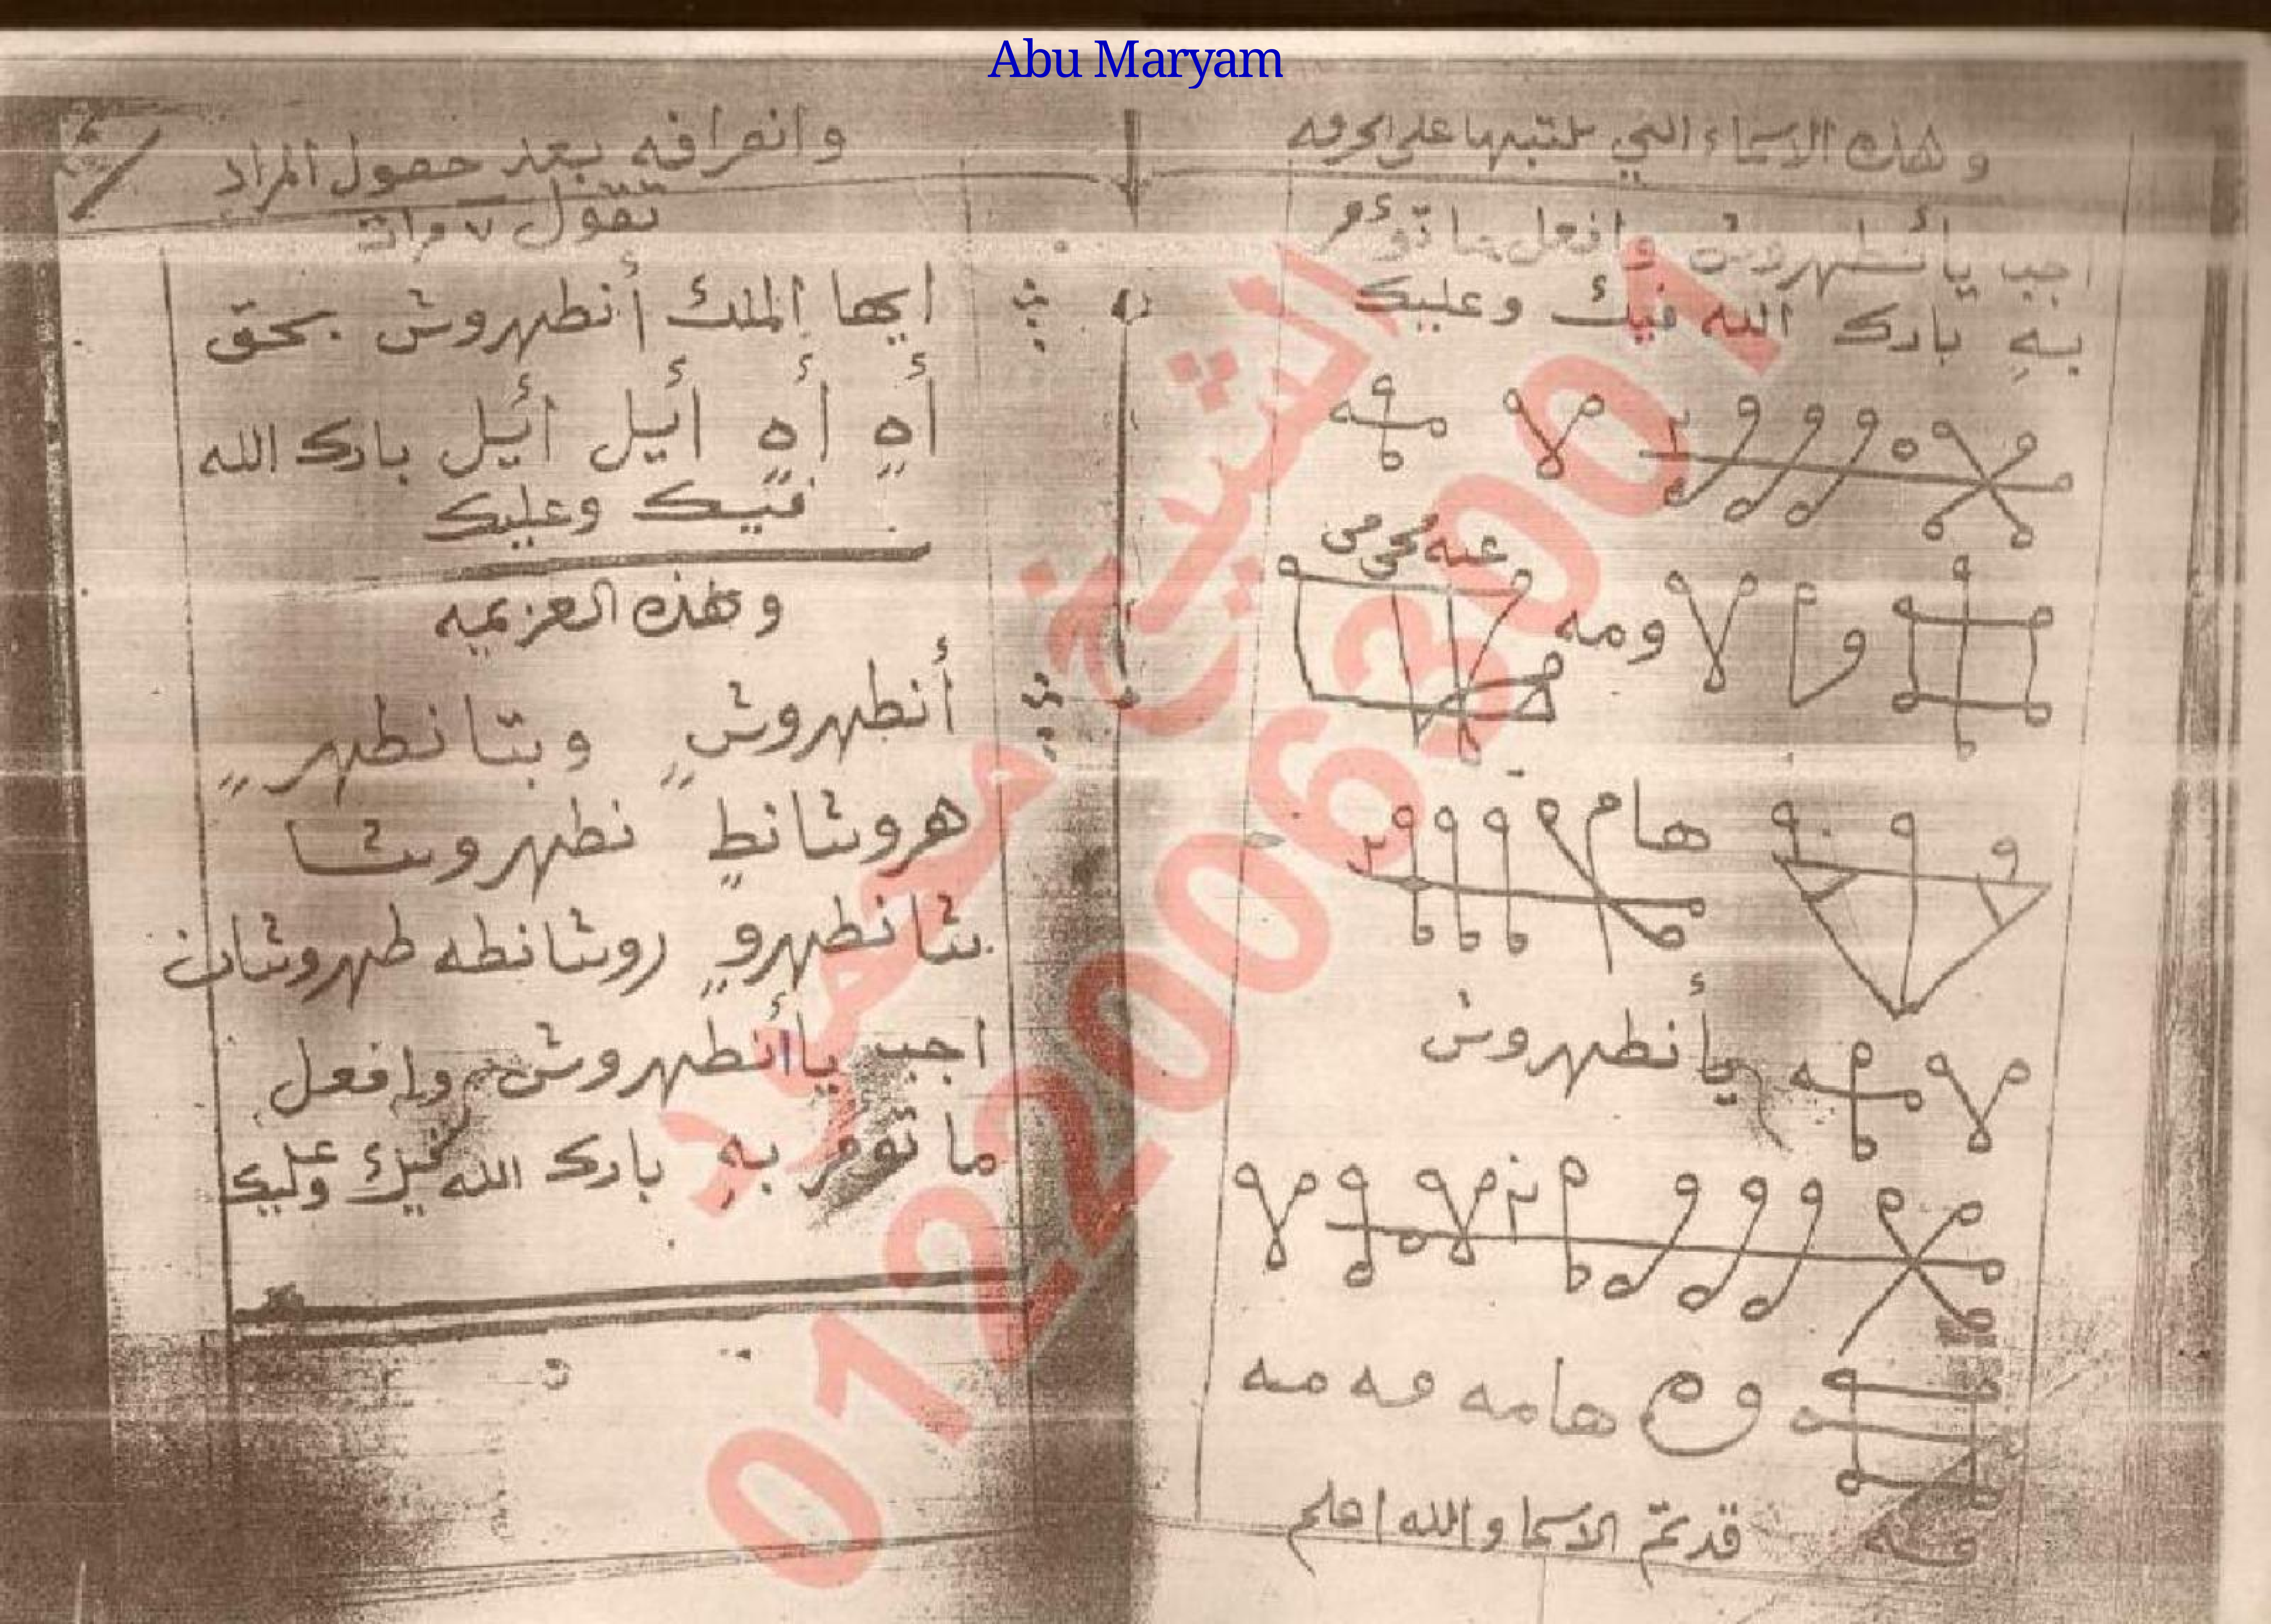 Abu Maryam
وهذه الاسماء التي تكتبها على الخرقه
اجب يا أنطهروش وافعل ما تؤمر
بهِ بارك الله فيك وعليك
ومه
هام
يا أنطهروش
هامه مه مه
قد تمّ الاسما والله اعلم
وانصرافه بعد حصول المراد
تقول ٧ مرات
ايها الملك أنطهروش بحق
أهٍ أهٍ أئيل أئيل بارك الله
فيك وعليك
وهذه العزيمه
أنطهروشٍ وبتانطهرٍ
هروشانطٍ نطهروشا
شانطهروٍ روشانطه طهروشان
اجب يا أنطهروش وافعل
ما تؤمر بهِ بارك الله فيك وعليك
الشيخ محمود
01220063001